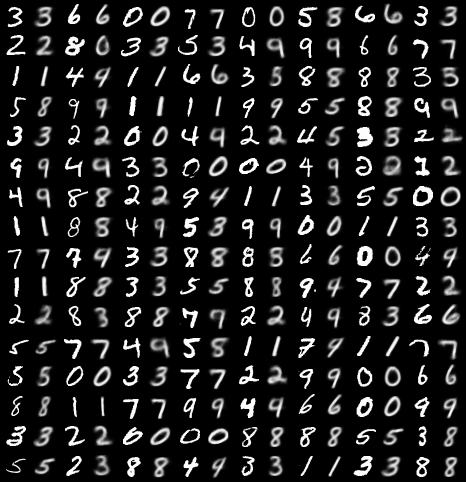 3 3 6 6 0 0 7 7 0 0 5 8 6 6 3 3
2 2 8 0 3 3 5 3 4 9 9 9 6 6 7 7
1 1 4 9 1 1 6 6 3 5 8 8 8 8 3 5
5 8 9 9 1 1 1 1 9 9 5 5 8 8 9 9
3 3 2 2 0 0 4 9 2 2 4 5 3 8 2 2
9 9 4 9 3 3 0 0 0 0 4 9 2 2 1 2
4 9 8 8 2 2 9 4 1 1 3 3 5 5 0 0
1 1 8 8 4 9 5 3 9 9 0 0 1 1 3 3
7 7 7 9 3 3 8 8 8 8 6 6 0 0 4 9
1 1 8 8 3 3 5 5 8 8 9 4 7 7 2 2
2 2 8 3 8 8 7 9 2 2 4 9 8 3 6 6
5 5 7 7 4 9 5 8 1 1 7 9 1 1 7 7
5 5 0 0 3 3 7 7 2 2 9 9 0 0 6 6
8 8 1 1 7 7 9 9 4 9 6 6 0 0 9 9
3 3 2 2 6 0 0 0 8 8 8 8 5 5 3 8
5 5 2 3 8 8 4 9 3 3 1 1 3 3 8 8